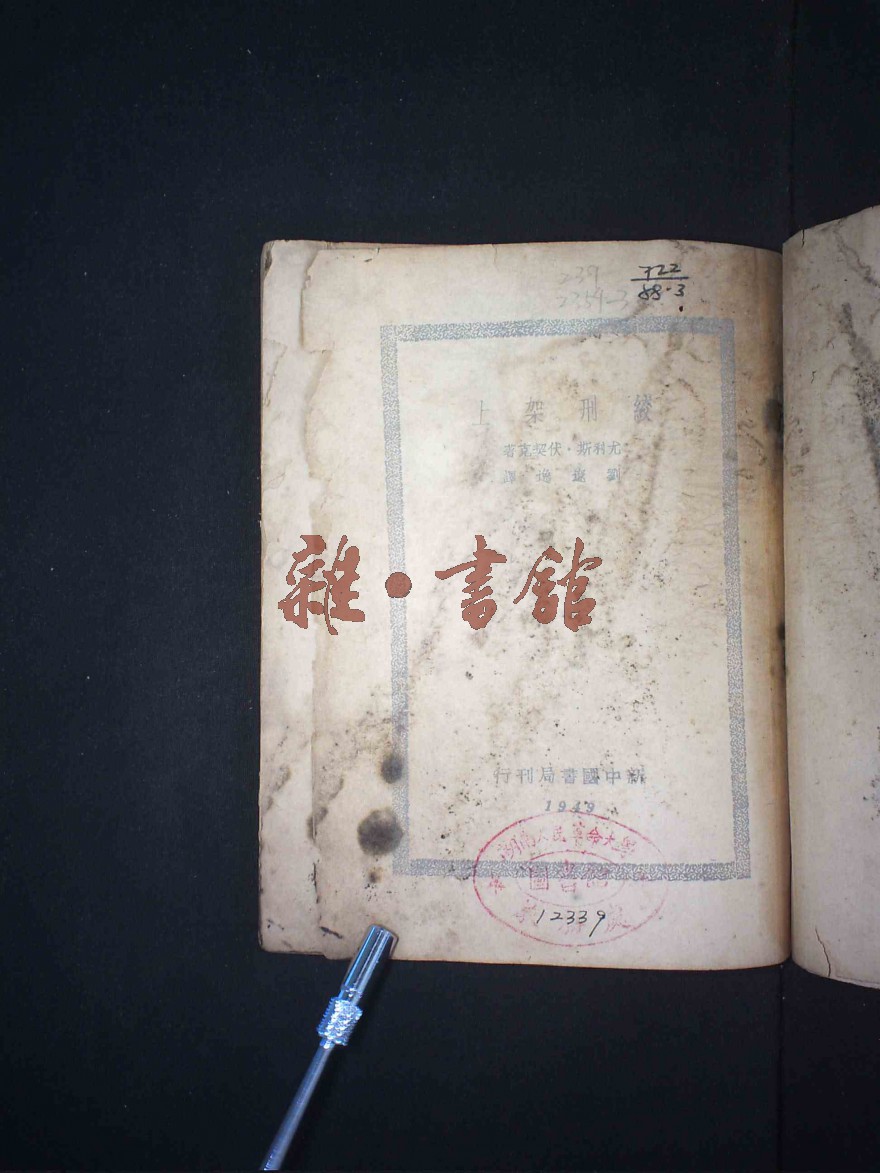 239
722
88·3
絞刑架上
尤利斯·伏契克著
劉遼逸譯
雜·書館
新中國書局刊行
1949
湖南人民革命大學
圖書館
12339